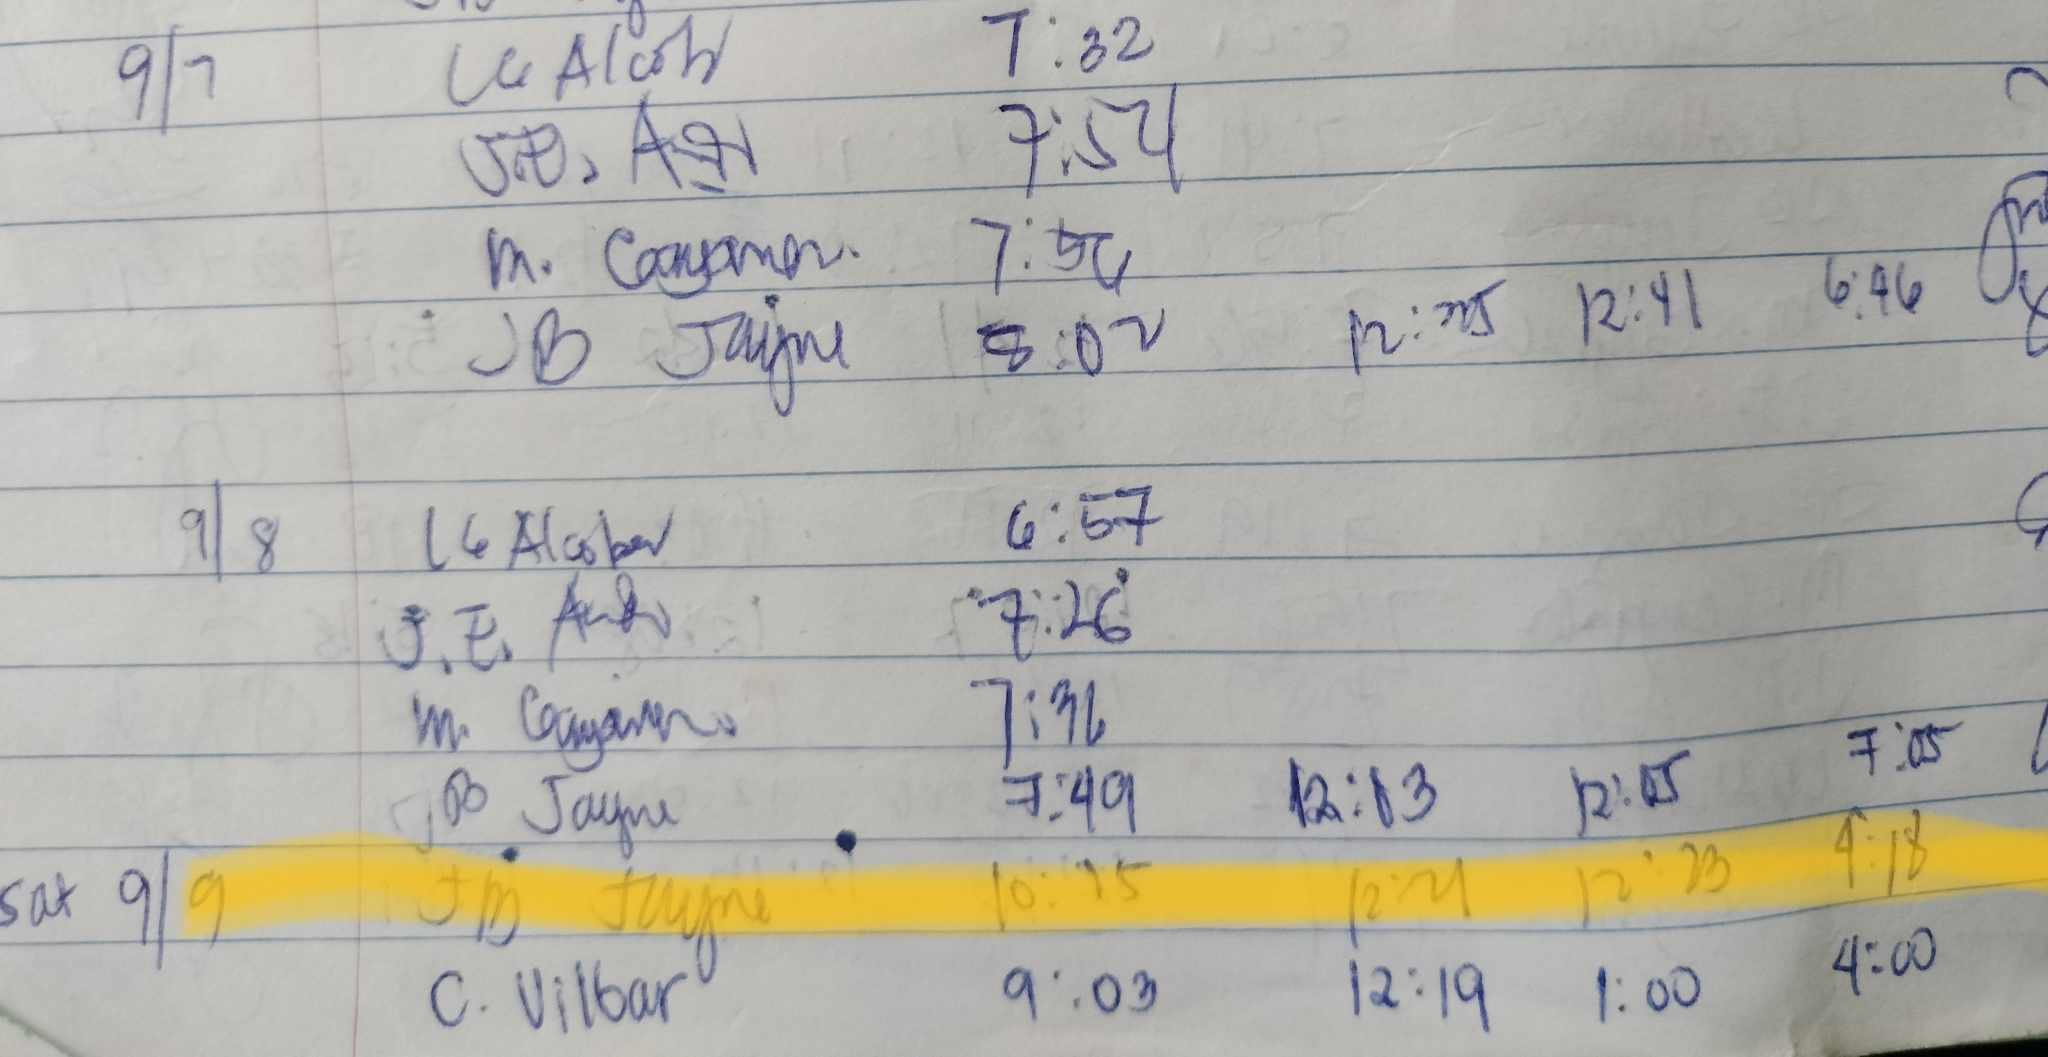 9/7 LG Alcob 7:32
J.E. 7:54
M. Caayaman. 7:56
JB Jayne 8:02 12:25 12:41 6:46
9/8 LG Alcober 6:57
J.E. 7:26
M. Caayaman. 7:36
JB Jayne 7:49 12:13 12:15 7:05
Sat 9/9 JB Jayne 10:25 12:21 12:23 4:18
C. Vilbar 9:03 12:19 1:00 4:00